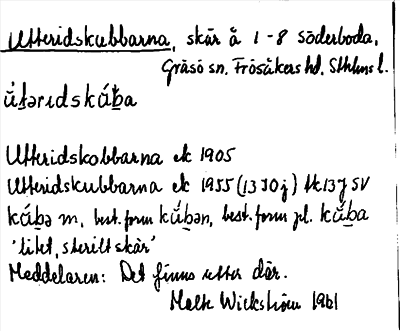 Utteridskubbarna, skär å 1-8 Söderboda,
Gräsö sn. Frösåkers hd. Sthlms l.
ú̆t̠ərɪdskú̆b̠a
Utteridskobbarna ek 1905
Utteridskubbarna ek 1955 (13 I 0 j) tk 13 j SV
kú̆b̠ə m, best. form kú̆b̠ən, best. form pl. kú̆b̠a
'litet, sterilt skär'
Meddelaren: Det finns utter där.
Malte Wickström 1961